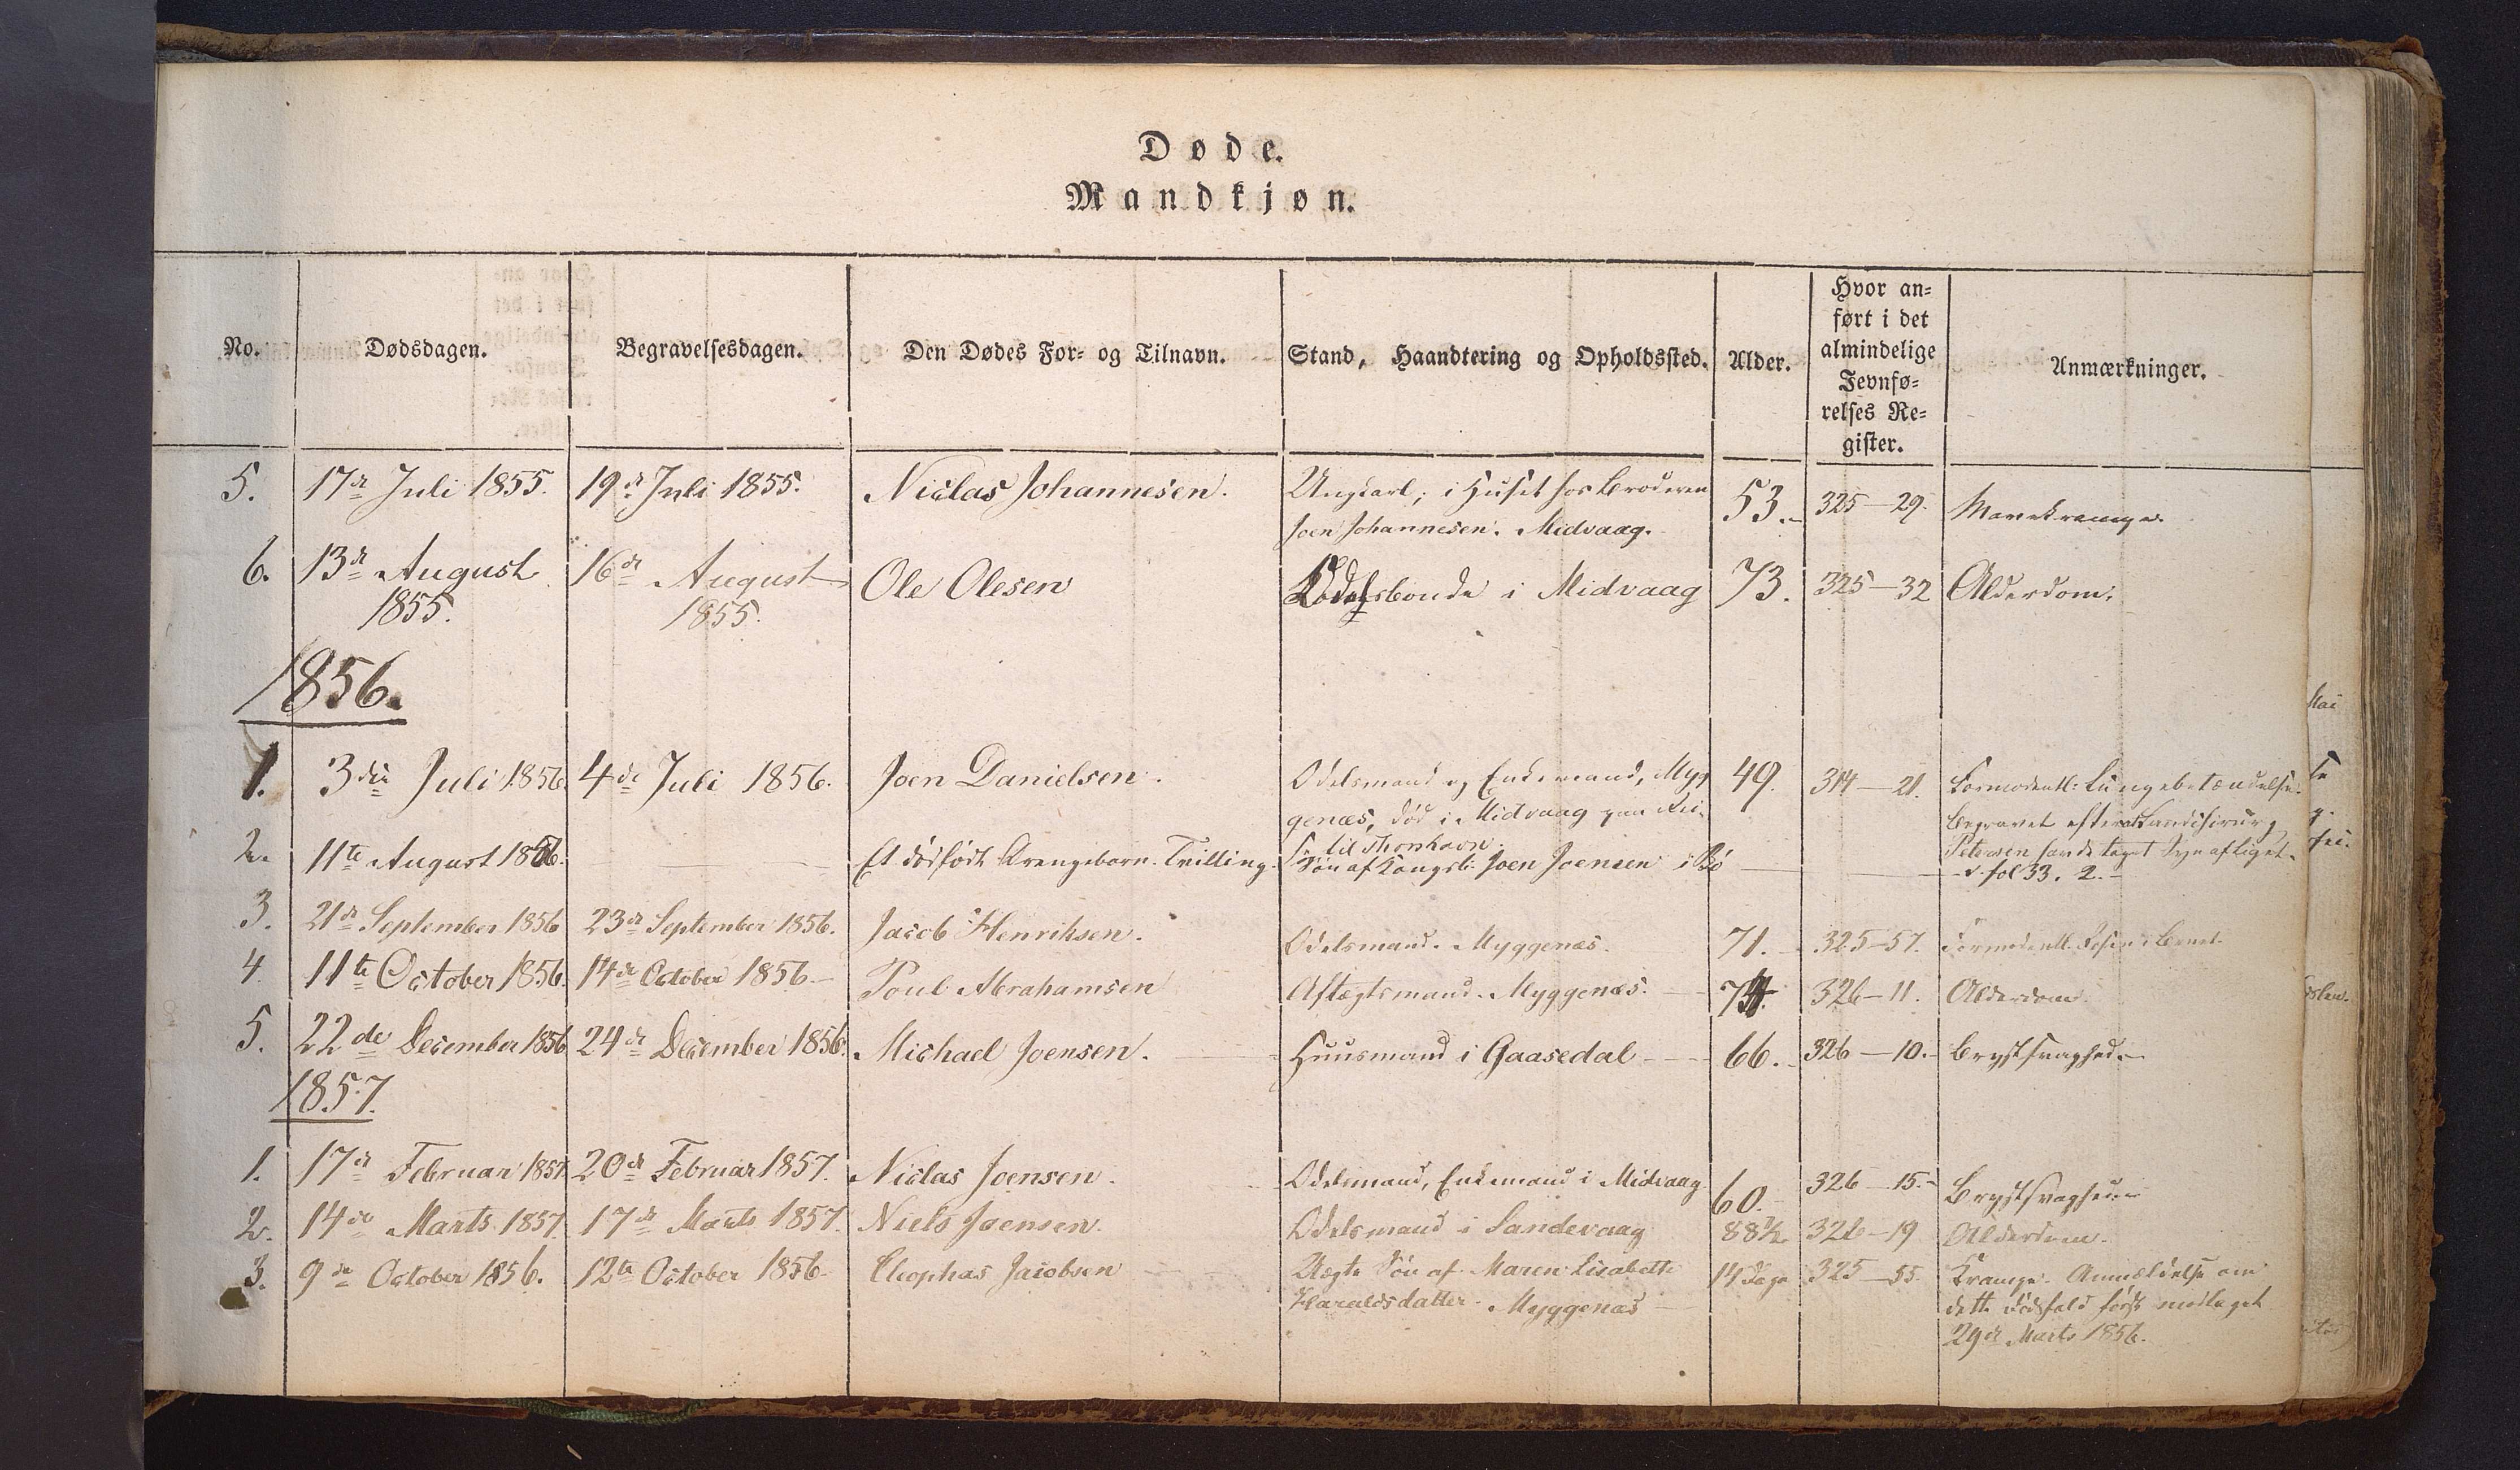 Døde.
Mandkjøn.
No.
Dødsdagen.
Begravelsesdagen.
Den Dødes For- og Tilnavn.
Stand, Haandtering og Opholdssted.
Alder.
Hvor an-
ført i det
almindelige
Jevnfø-
relses Re-
gister.
Anmærkninger.
5. 17de Juli 1855. 19de Juli 1855. Niclas Johannesen. Ungkarl; i Huset hos Broderen 53. 325-29. Mavekrampe.
Joen Johannesen. Midvaag.
6. 13de August 16de August Ole Olesen bonde i Midvaag 73. 325-32 Alderdom.
1855. 1855.
1856.
1. 3die Juli 1856. 4de Juli 1856. Joen Danielsen. Odelsmand og Enkemand, Myg 49. 314-21. Formodentl: Lungebetændelse.
genæs, død i Midvaag paa Rei- Begravet efterat Landchirurg
se til Thorshavn. Petersen havde taget Syn af Liget.
2. 11te August 1856. Et dødfødt Drengebarn. Tvilling. Søn af Kongsb: Joen Joensen i Bø v. fol 33. 2.
3. 21de September 1856 23de September 1856. Jacob Henriksen. Odelsmand. Myggenæs. 71. 325-57. Formodentl.
4. 11te October 1856. 14de October 1856 Poul Abrahamsen Aftægtsmand. Myggenæs. 326-11. Alderdom.
5. 22de December 1856 24de December 1856. Michael Joensen. Huusmand i Gaasedal 66. 326-10. Brystsvaghed.
1857.
1. 17de Februar 1857. 20de Februar 1857. Niclas Joensen. Odelsmand, Enkemand i Midvaag. 60. 326-15. Brystsvaghed.
2. 14de Marts 1857. 17de Marts 1857. Niels Joensen. Odelsmand i Sandevaag 88½ 326-19 Alderdom.
3. 9de October 1856. 12te October 1856. Cleophas Jacobsen Uægte Søn af Maren Lisabeth 14 Dage 325-55. Krampe. Anmeldelse om
Haraldsdatter. Myggenæs dette Dødsfald først modtaget
29de Marts 1856.